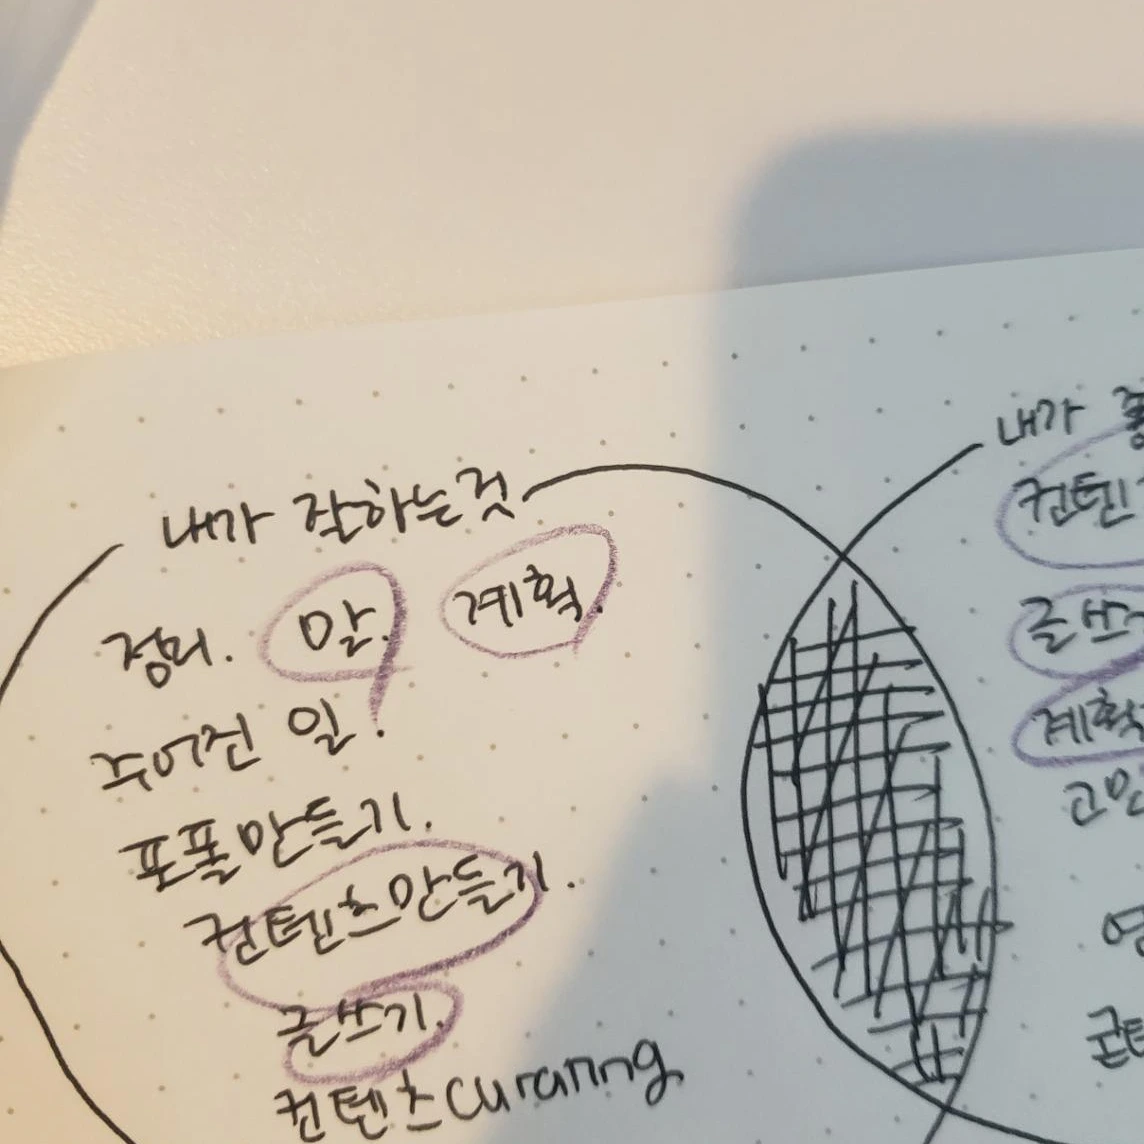 내가 잘하는것
정리. 말. 계획.
주어진 일.
포폴만들기.
컨텐츠만들기.
글쓰기.
컨텐츠 curating
내가
컨텐
글쓰
계획
고민